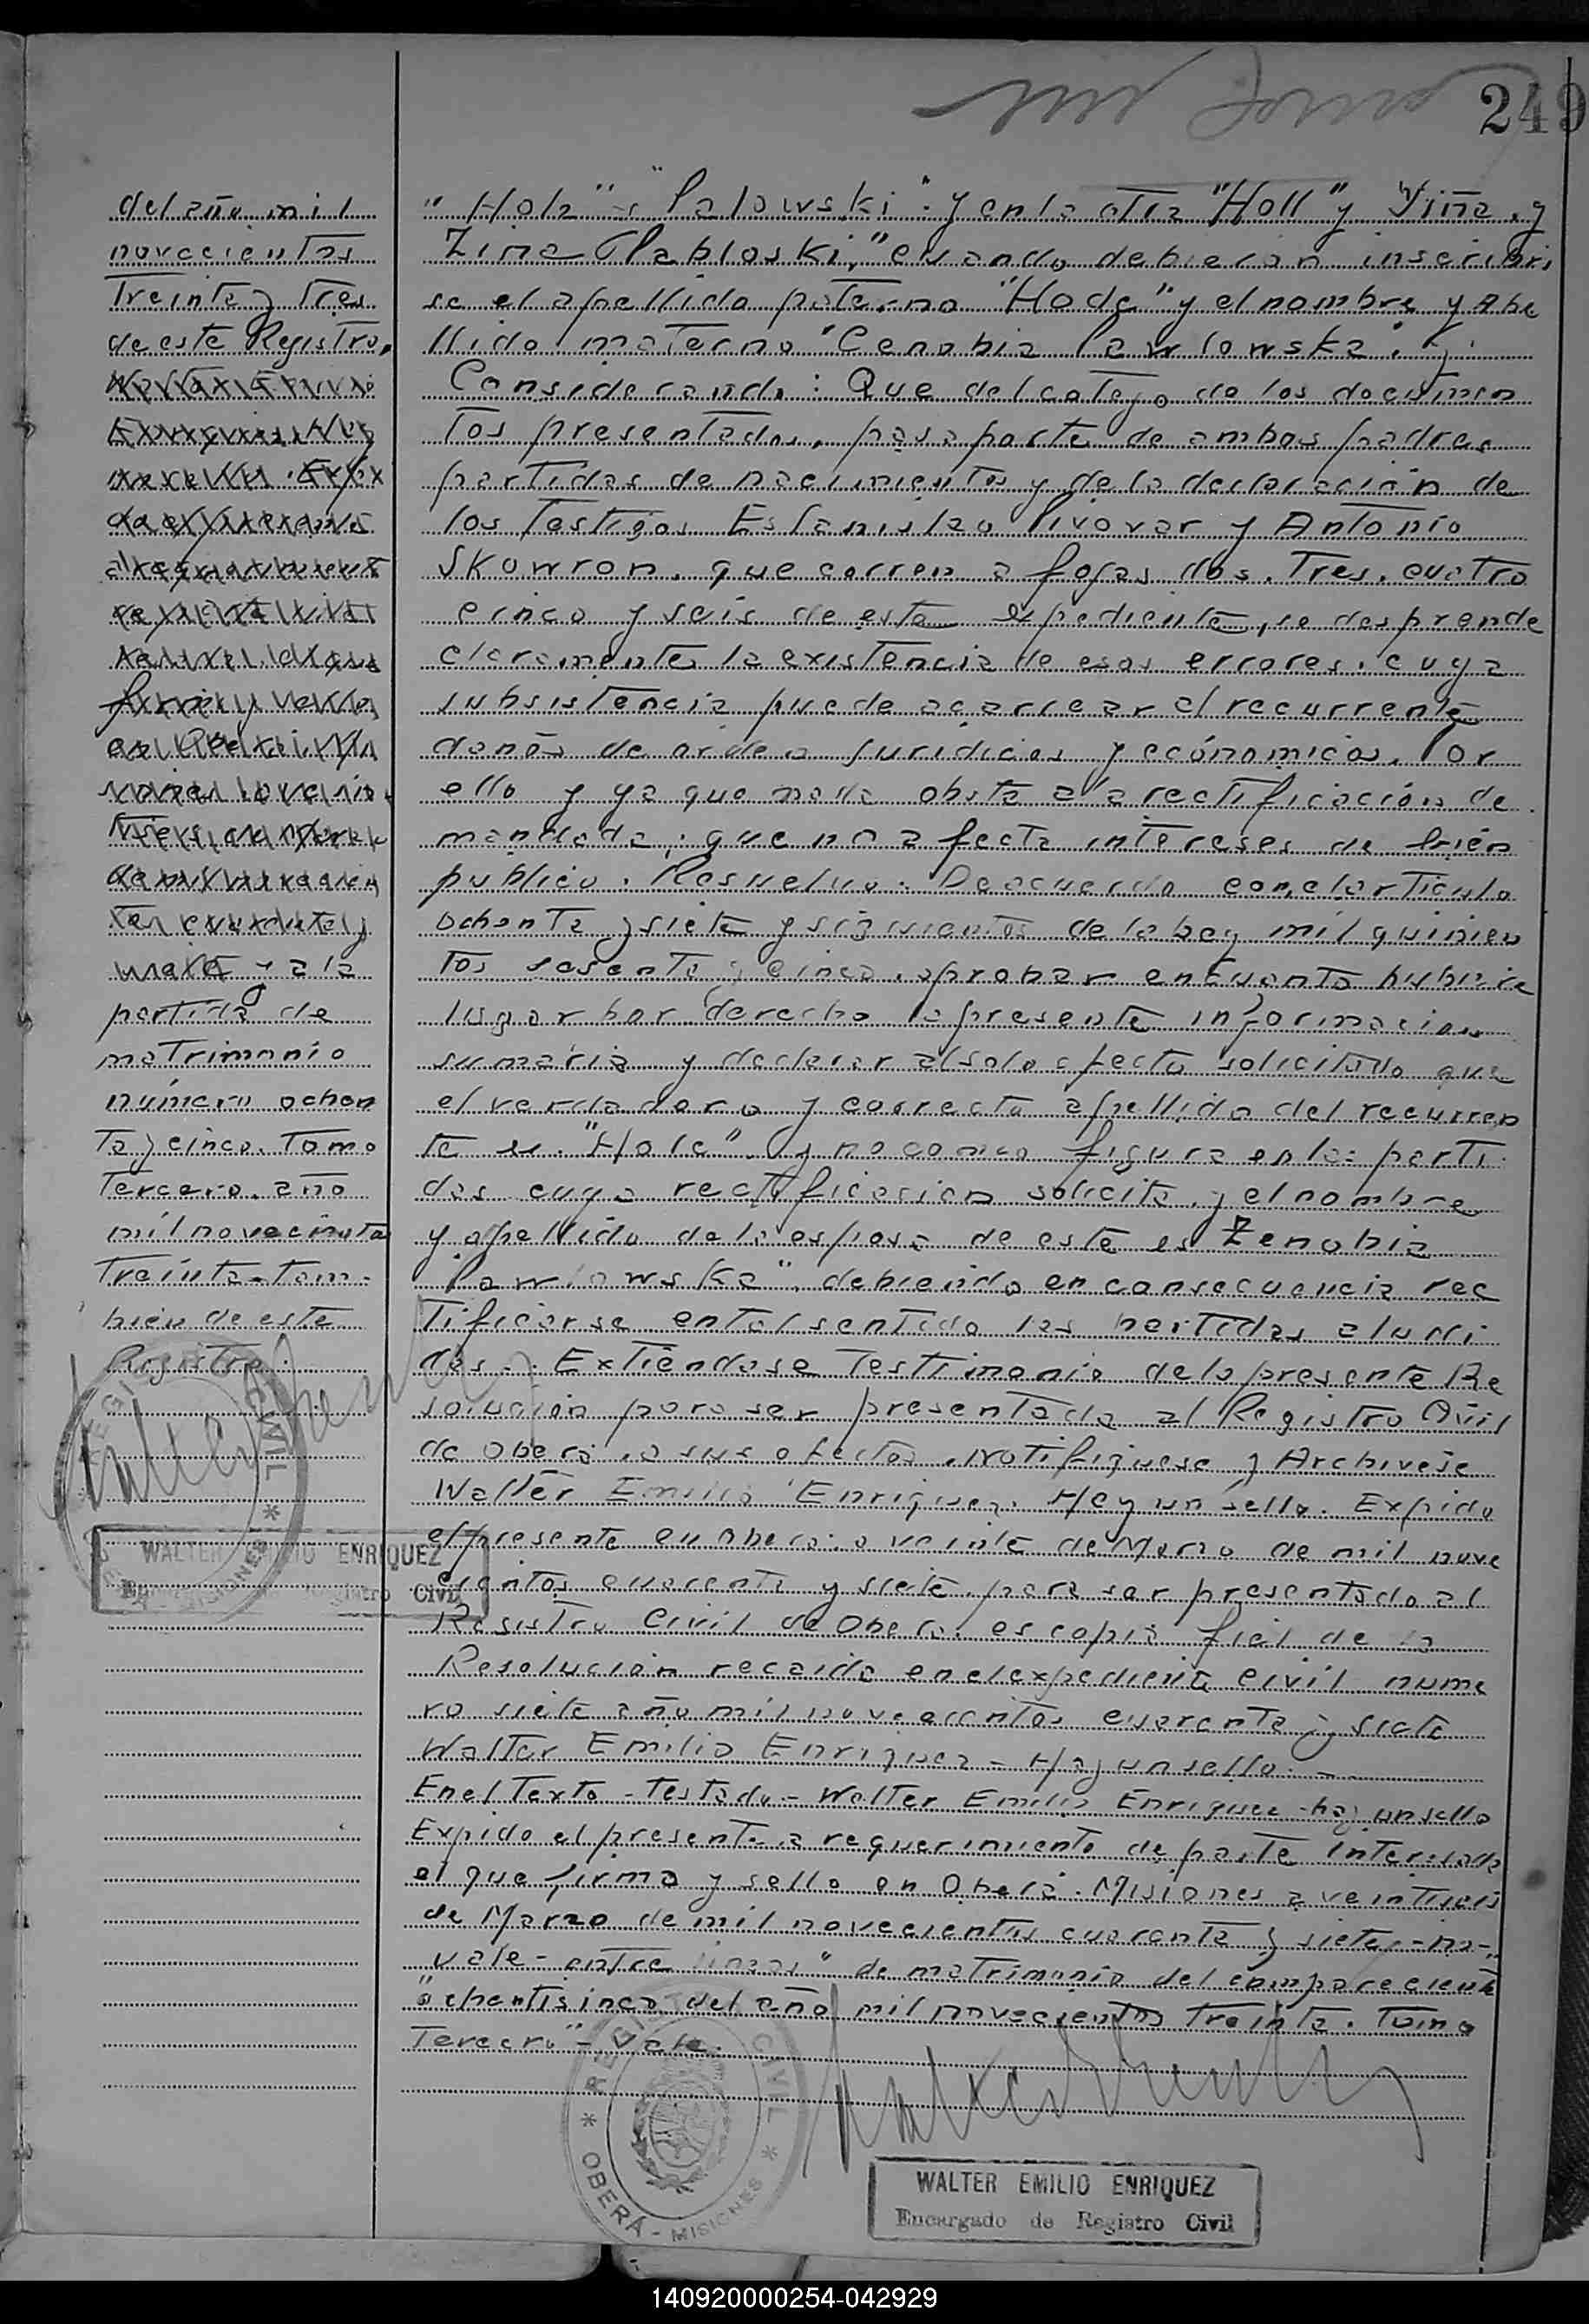 249
del año mil
novecientos
Treinta y Tres
de este Registro,
y a la
partida de
matrimonio
número ochen
ta y cinco. Tomo
Tercero. año
mil novecientos
Treinta - Tam-
bien de este
Registro.
REGISTRO CIVIL
MISIONES
WALTER EMILIO ENRIQUEZ
Encargado de Registro Civil
"Holz" "Palowski" y en la otra "Holl" y Viña, y
Zina Pabloski," cuando debieran inscribir
se el apellido paterno "Hodc" y el nombre y Ape
llido materno "Cenobia Pawlowska". y:
Considerando: Que del cotejo de los documen
tos presentados, pasaporte de ambos padres
partidas de nacimientos y de la declaración de
los Testigos Estanislao Pivovar y Antonio
Skowron. que corren a fojas dos. Tres. cuatro
cinco y seis de este expediente, se desprende
claramente la existencia de esos errores. cuya
subsistencia puede acarrear al recurrente
daños de orden juridicos y económicos. Por
ello y ya que nada obsta a la rectificación de
mandada, que no afecta intereses de bién
publico. Resuelvo. De acuerdo con el articulo
ochenta y siete y siguientes de la Ley mil quinien
tos sesenta y cinco. aprobar en cuanto hubiere
lugar por derecho la presente información
sumaria y declarar al solo efecto solicitado que
el verdadero y correcto apellido del recurren
te es "Holc" y no como figura en las parti
das cuya rectificación solicita, y el nombre
y apellido de la esposa de este es Zenobia
Pawlowska", debiendo en consecuencia rec
tificarse en tal sentido las partidas aludi
das. Extiendase Testimonio de la presente Re
solución para ser presentado al Registro Civil
de Oberá, a sus efectos. Notifiquese y Archivese
Walter Emilio Enriquez. Hay un sello. Expido
el presente en Oberá. a veinte de Marzo de mil nove
cientos cuarenta y siete. para ser presentado al
Registro Civil de Oberá. es copia fiel de la
Resolución recaida en el expediente Civil nume
ro siete año mil novecientos cuarenta y siete
Walter Emilio Enriquez - Hay un sello. -
En el Texto - Testado - Walter Emilio Enriquez - hay un sello
Expido el presente a requerimiento de parte Interesada
el que firmo y sello en Oberá. Misiones a veintiseis
de Marzo de mil novecientos cuarenta y siete, - no -
vale - entre lineas "de matrimonio del compareciente
"ochentisinco del año mil novecientos Treinta. Tomo
Tercero" - Vale.
REGISTRO CIVIL
* OBERÁ - MISIONES *
WALTER EMILIO ENRIQUEZ
Encargado de Registro Civil
140920000254-042929